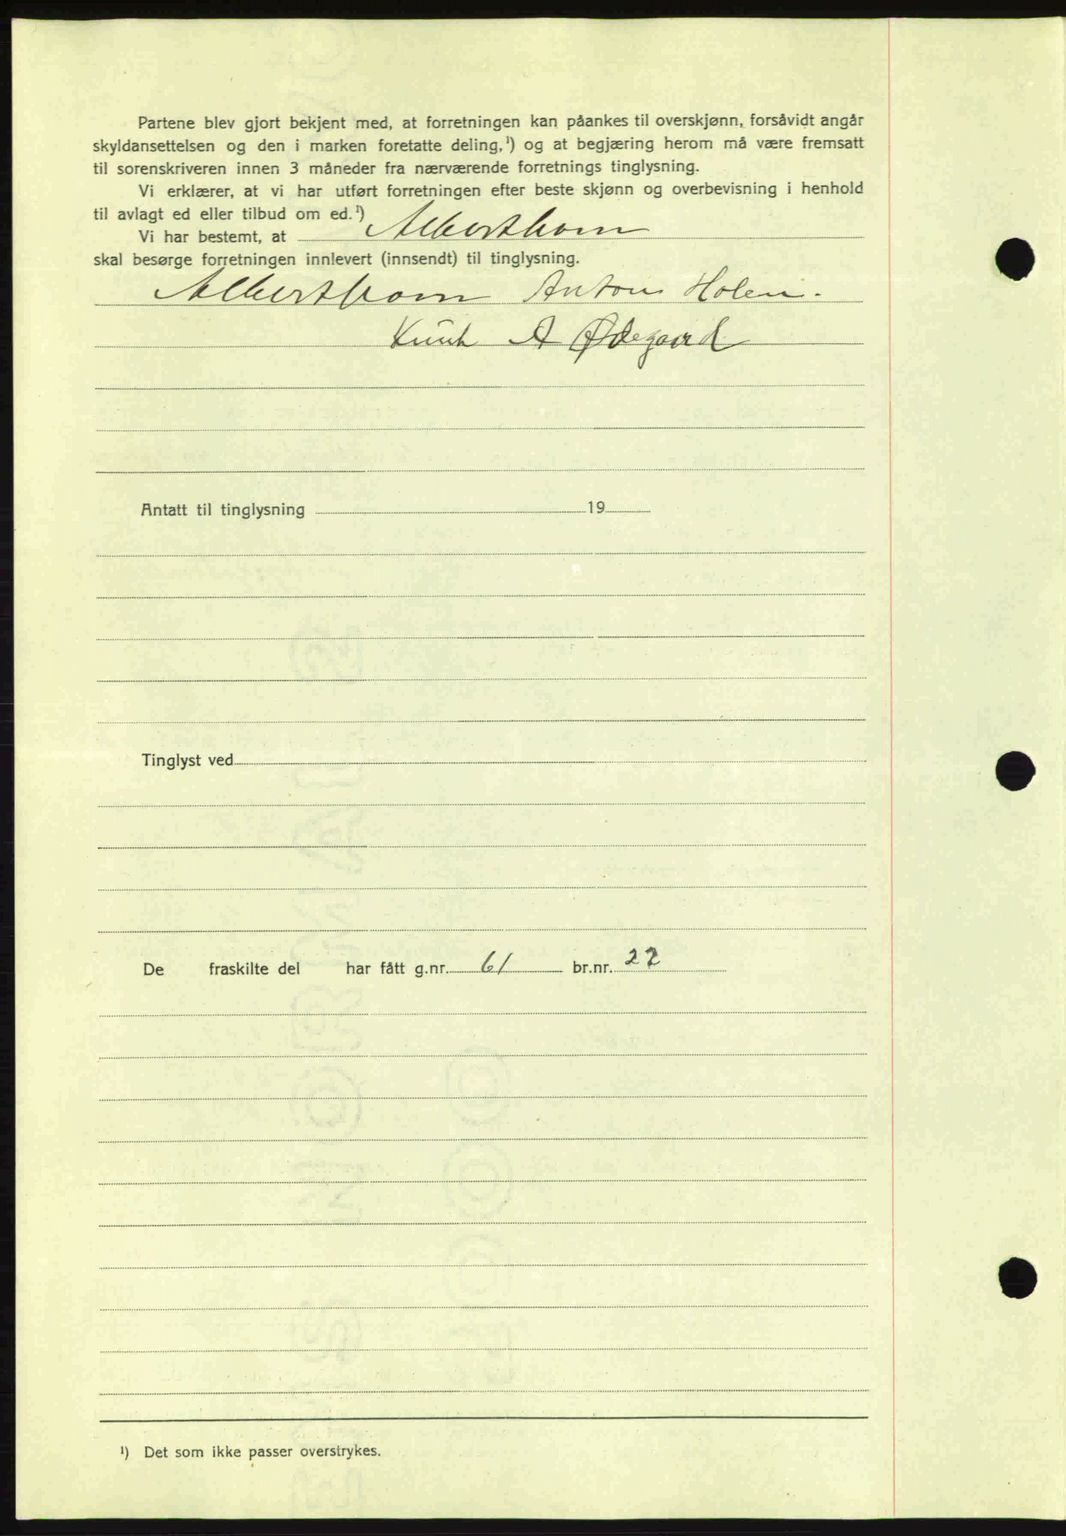 Partene blev gjort bekjent med, at forretningen kan påankes til overskjønn, forsåvidt angår
skyldansettelsen og den i marken foretatte deling,¹) og at begjæring herom må være fremsatt
til sorenskriveren innen 3 måneder fra nærværende forretnings tinglysning.
Vi erklærer, at vi har utført forretningen efter beste skjønn og overbevisning i henhold
til avlagt ed eller tilbud om ed.¹)
Vi har bestemt, at Albert Hom
skal besørge forretningen innlevert (innsendt) til tinglysning.
Albert Hom Anton Holen.
Knut A Ødegaard
Antatt til tinglysning 19
Tinglyst ved
De fraskilte del har fått g.nr. 61 br.nr. 22
¹) Det som ikke passer overstrykes.